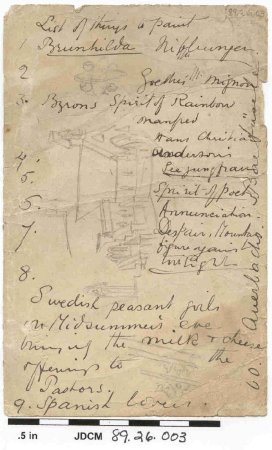 89.26.03
List of things to paint
1. Brunhilda Niflunger
2 Goethe's Mignon
3. Byrons Spirit of Rainbow
Manfred
Hans Christian
4. Anderson's
5. Lee jungfrau
6. Spirit of poet
7. Annunciation
Despair, Mountain
figure against
twilight
8.
Swedish peasant girls
on Midsummer's eve
bringing the milk & cheese
offerings to the
Pastors.
9. Spanish lovers.
.5 in JDCM 89.26.003